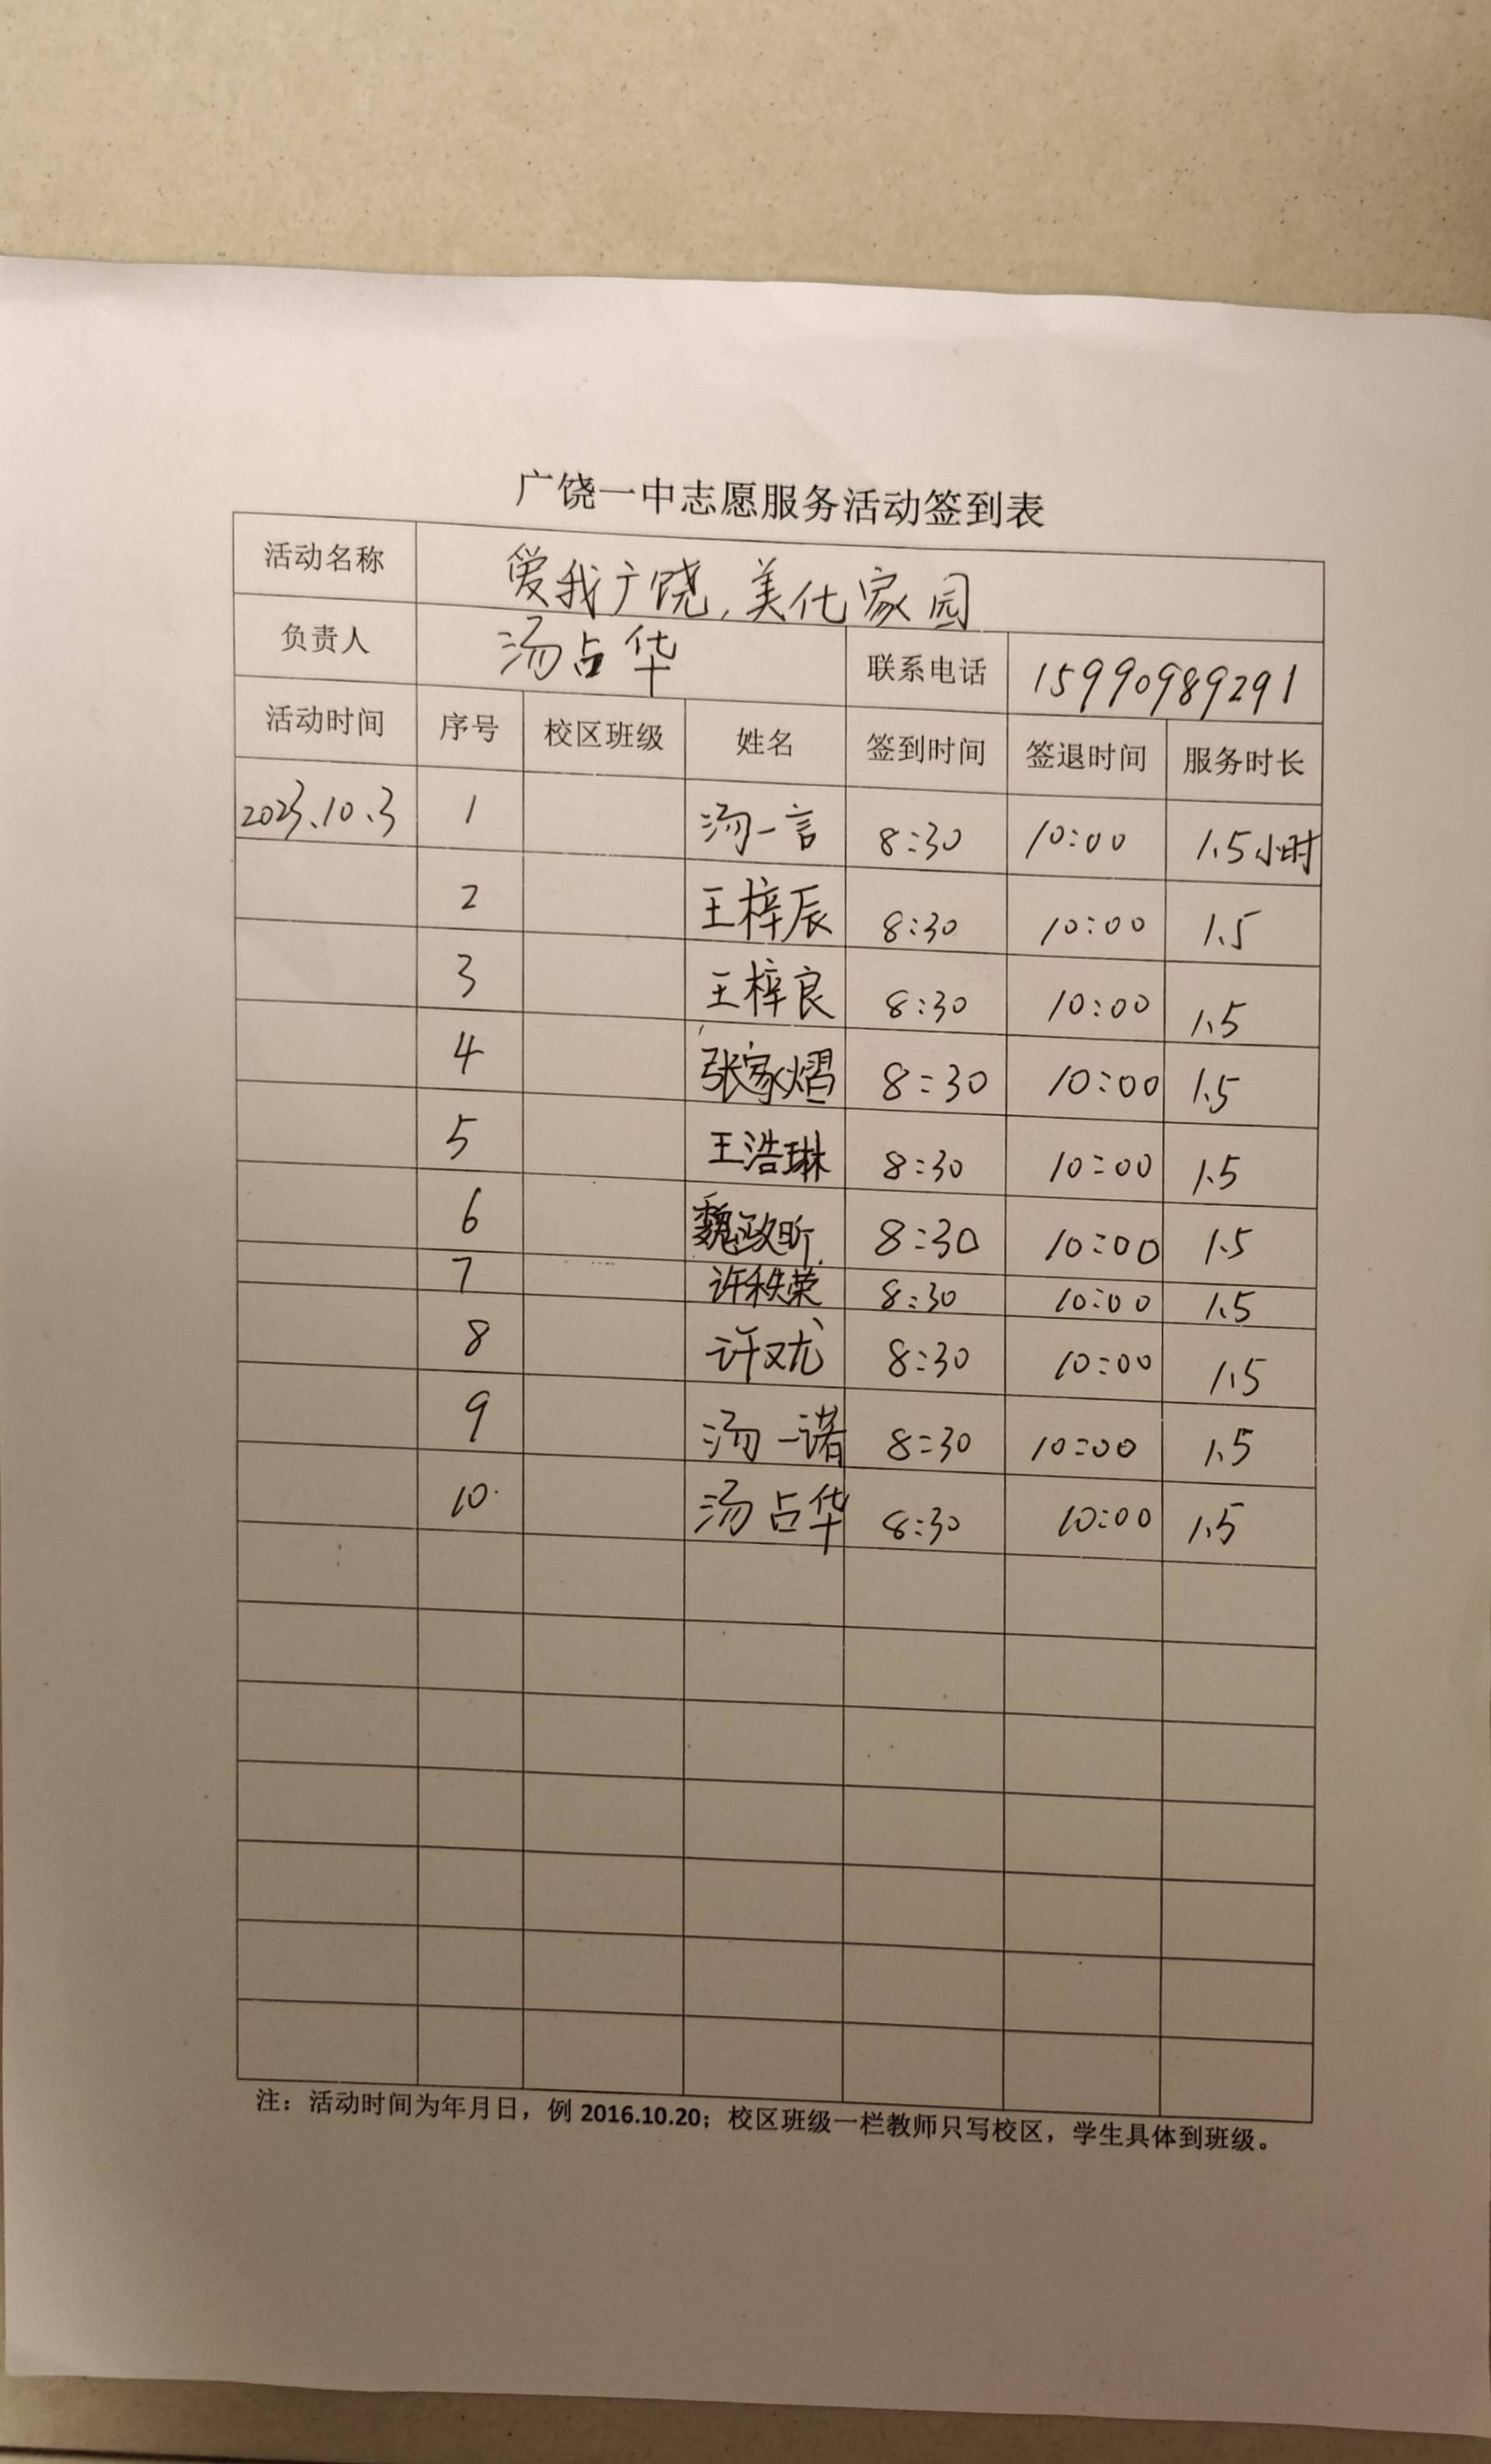 广饶一中志愿服务活动签到表
活动名称 爱我广饶,美化家园
负责人 汤占华 联系电话 15990989291
活动时间 序号 校区班级 姓名 签到时间 签退时间 服务时长
2023.10.3 1 汤一言 8:30 10:00 1.5小时
2 王梓辰 8:30 10:00 1.5
3 王梓良 8:30 10:00 1.5
4 张家熠 8:30 10:00 1.5
5 王浩琳 8:30 10:00 1.5
6 魏政昕 8:30 10:00 1.5
7 许秩荣 8:30 10:00 1.5
8 许双龙 8:30 10:00 1.5
9 汤一诺 8:30 10:00 1.5
10. 汤占华 8:30 10:00 1.5
注：活动时间为年月日，例 2016.10.20；校区班级一栏教师只写校区，学生具体到班级。